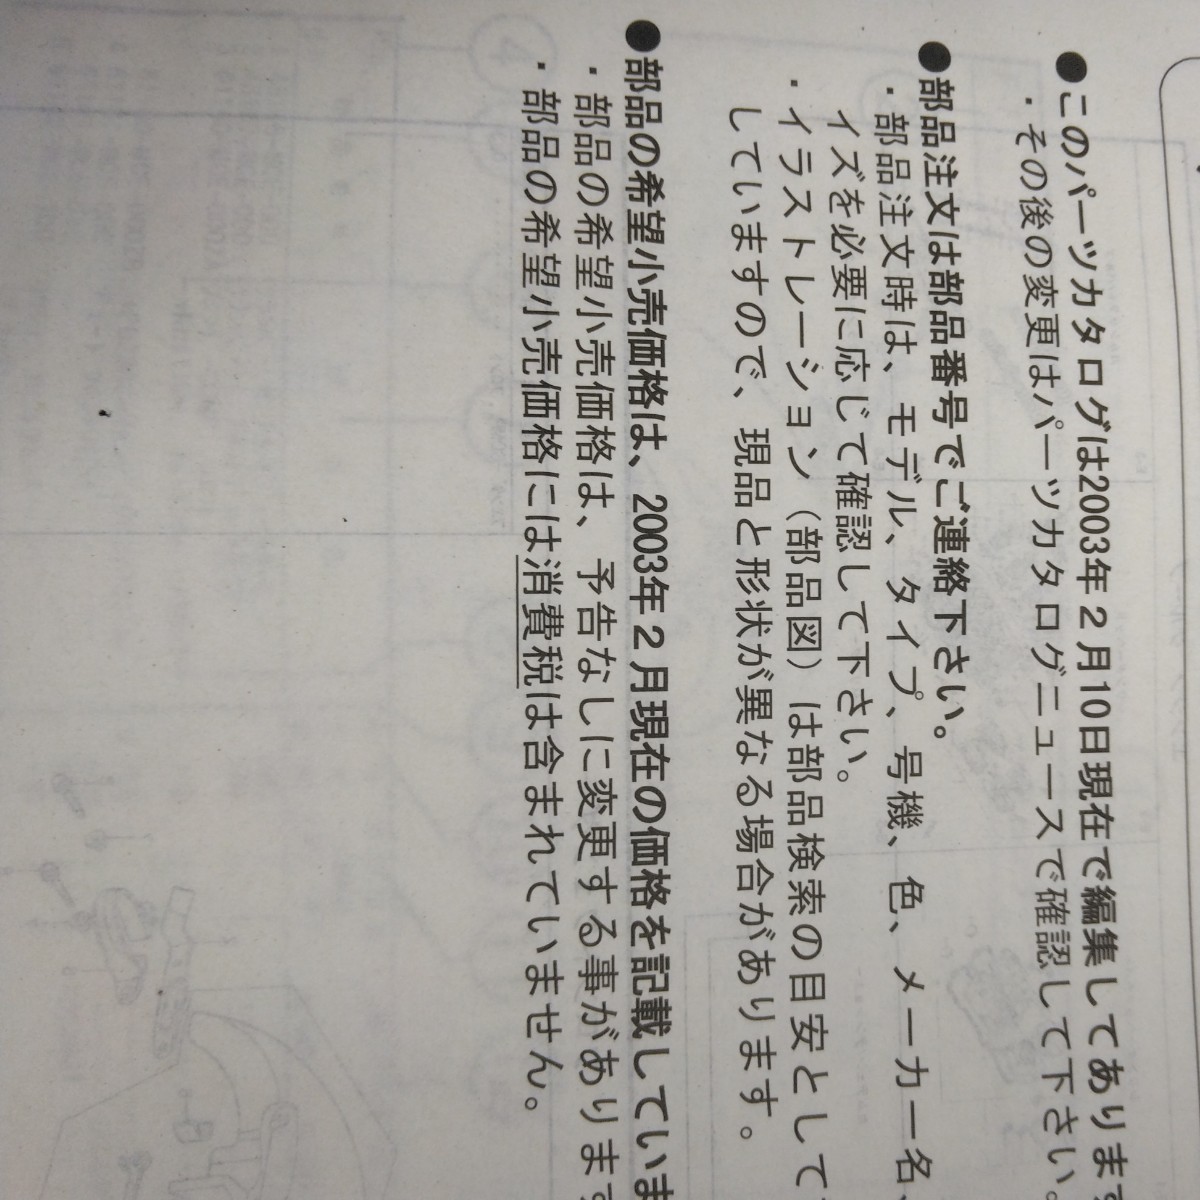 ●このパーツカタログは2003年2月10日現在で編集してあります
・その後の変更はパーツカタログニュースで確認して下さい。
●部品注文は部品番号でご連絡下さい。
・部品注文時は、モデル、タイプ、号機、色、メーカー名、
イズを必要に応じて確認して下さい。
・イラストレーション（部品図）は部品検索の目安として
していますので、現品と形状が異なる場合があります。
●部品の希望小売価格は、2003年2月現在の価格を記載していま
・部品の希望小売価格は、予告なしに変更する事があります
・部品の希望小売価格には消費税は含まれていません。